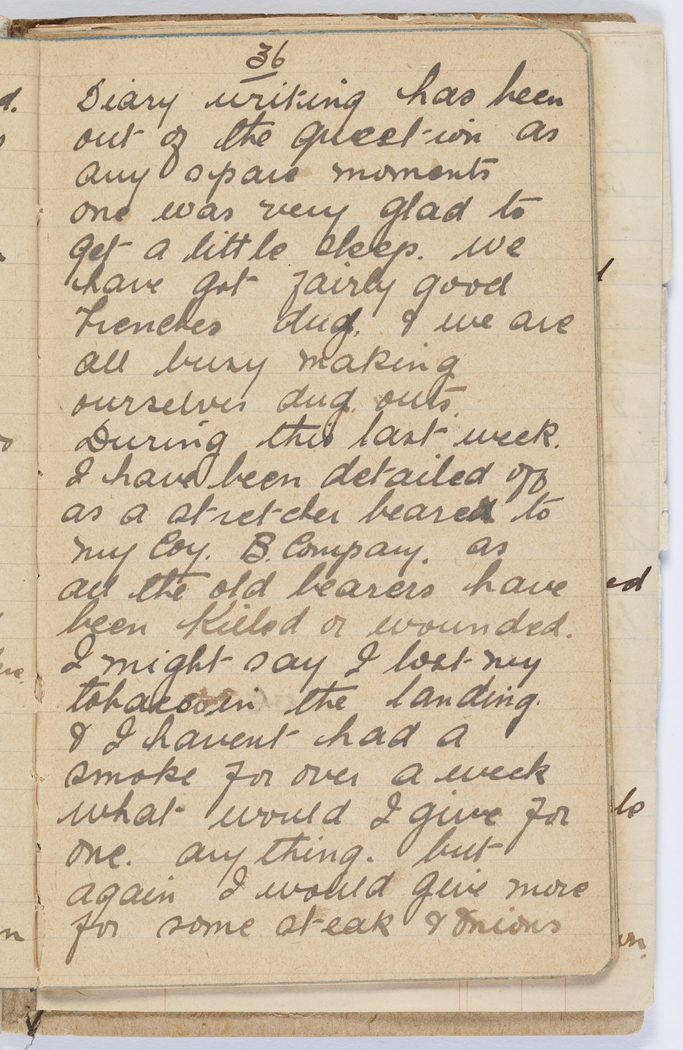 36
Diary writing has been
out of the question as
any spare moments
one was very glad to
get a little sleep. we
have got fairly good
trenches dug. & we are
all busy making
ourselves dug outs.
During this last week.
I have been detailed off
as a stretcher bearer to
my Coy. B. Company. as
all the old bearers have
been killed or wounded.
I might say I lost my
tobacco in the landing.
& I havent had a
smoke for over a week
what would I give for
one. any thing. but
again I would give more
for some steak & Onions